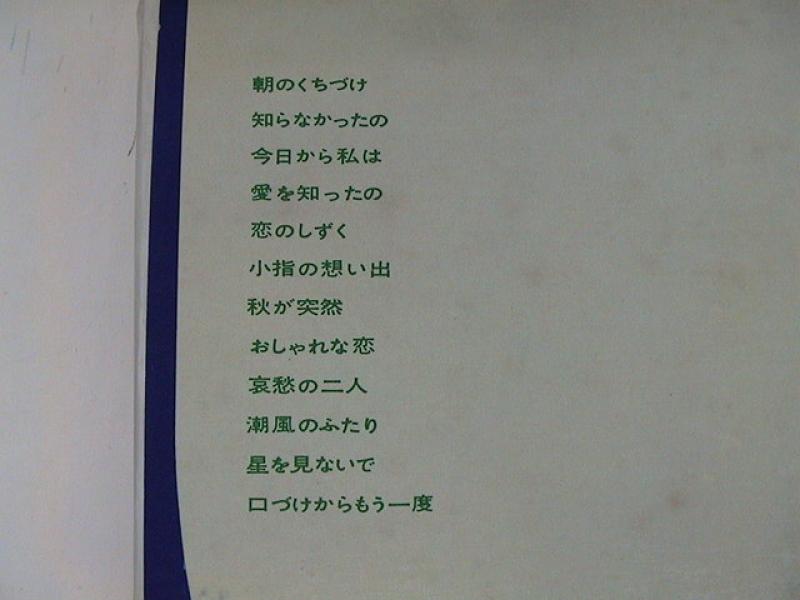 朝のくちづけ
知らなかったの
今日から私は
愛を知ったの
恋のしずく
小指の想い出
秋が突然
おしゃれな恋
哀愁の二人
潮風のふたり
星を見ないで
口づけからもう一度